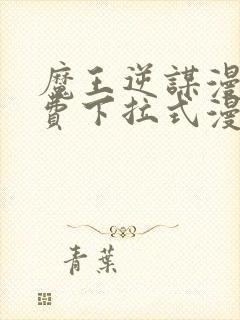 魔王逆謀漫
費下拉式漫
青葉